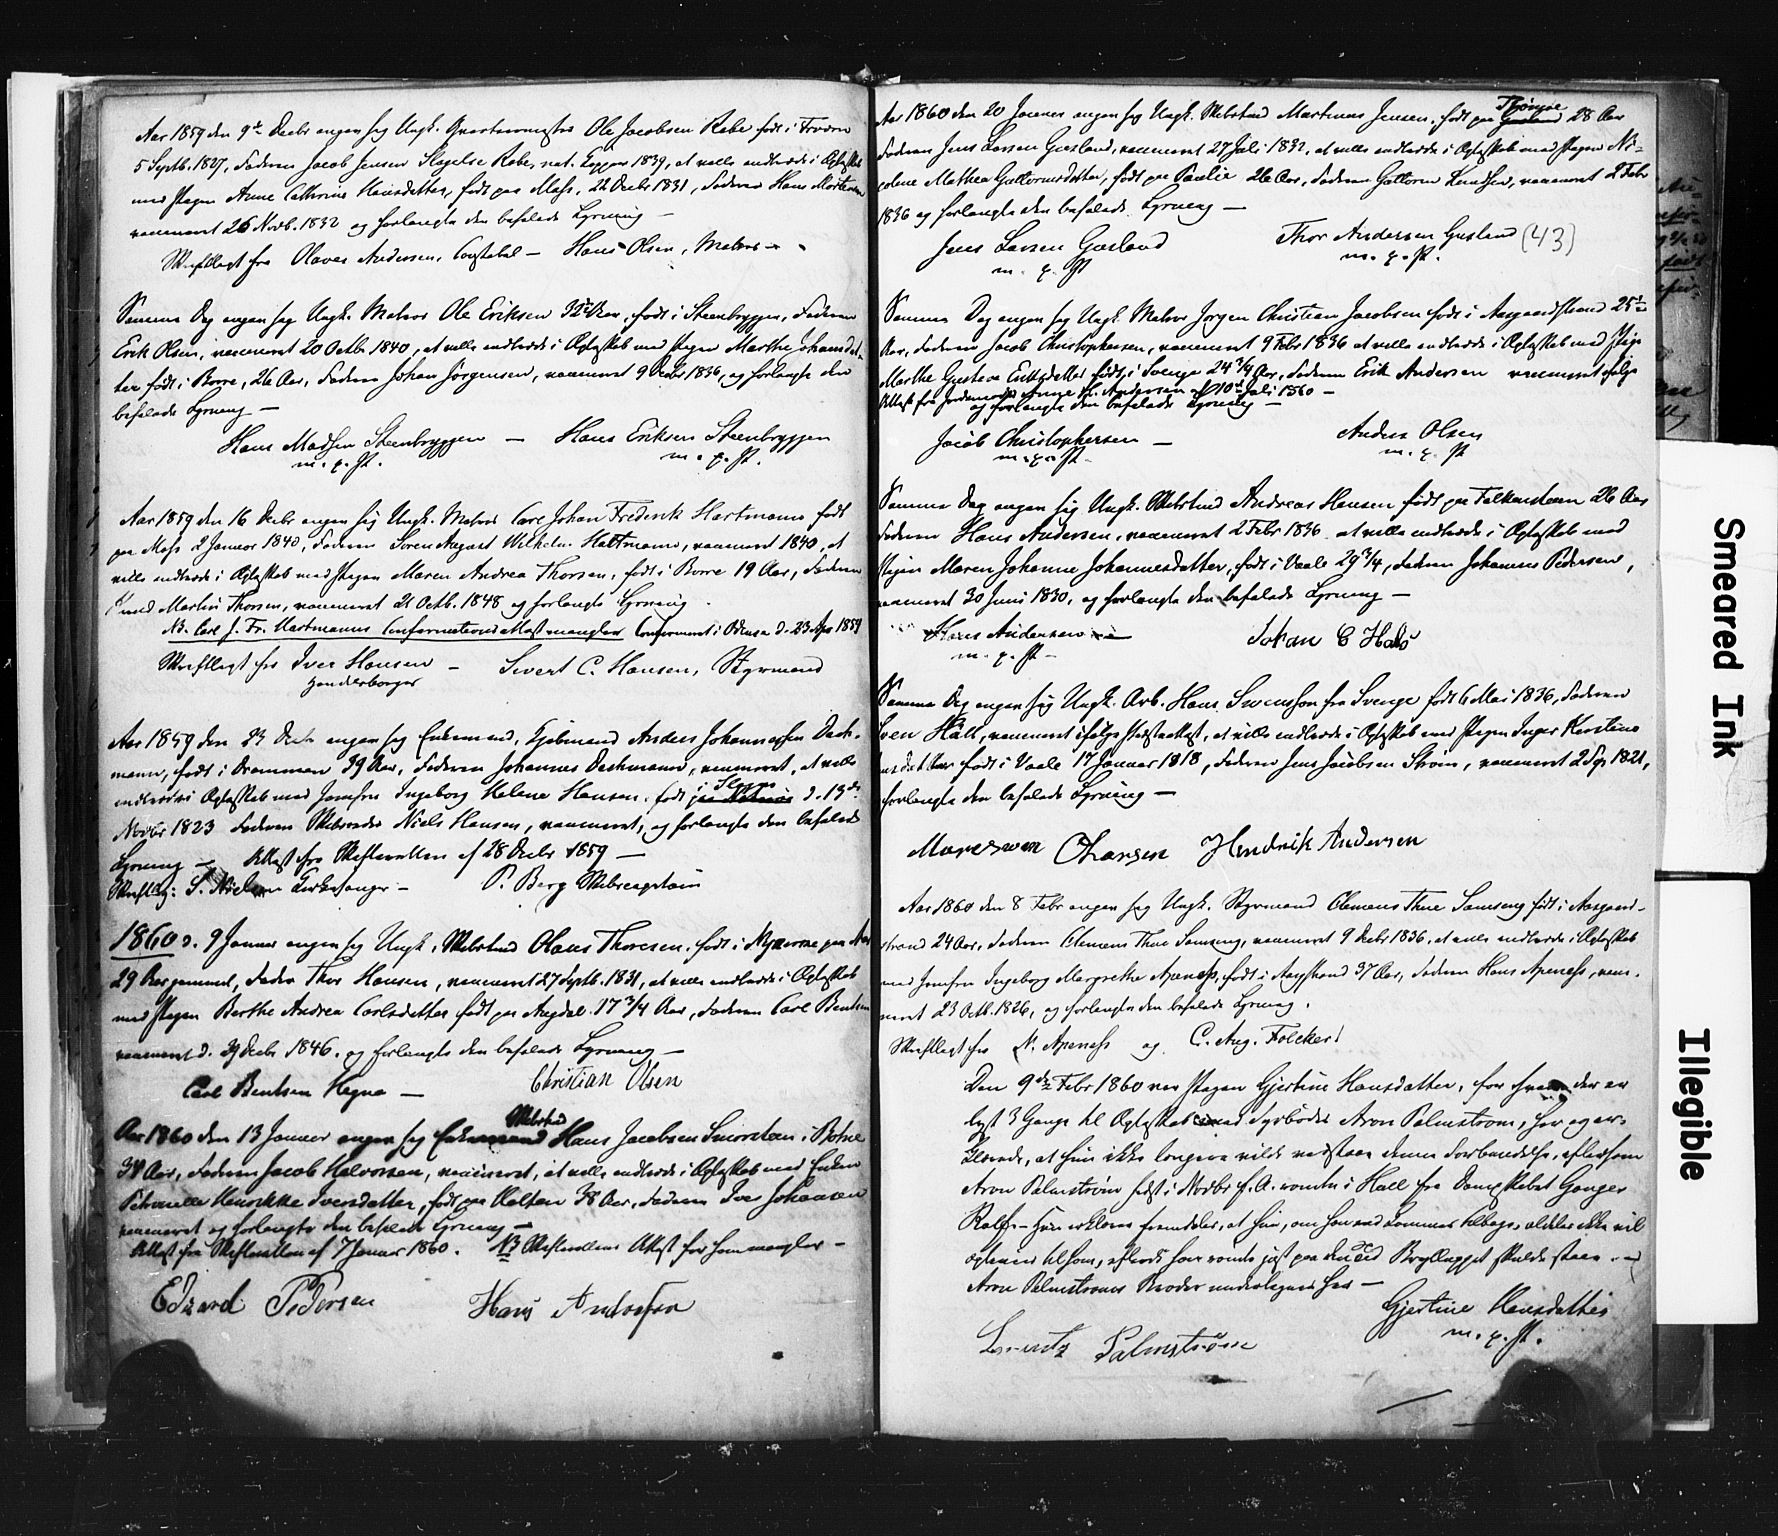 Aar 1859 den 9de Decbr angav sig Ungk. Quartermester Ole Jacobsen Rabe født i
5 Septb. 1827, Faderen Jacob Jensen Rabe, vac. 1839, at ville indtræde i Ægteskab
med Pigen Anne Cathrine Hansdatter, født paa Moss, 22 Decbr 1831, Faderen Hans Mortensen
vaccineret 26 Novb. 1832 og forlangte den befalede Lysning —
Skriftligt fra Olaves Andersen, Constabel — Hans Olsen, Matros
Samme Dag angav sig Ungk. Matros Ole Eriksen 32 Aar, født i Steenbryggen, Faderen
Erik Olsen, vaccineret 20 Octb. 1840, at ville indtræde i Ægteskab med Pigen Marthe Johansdat-
ter født i Borre, 26 Aar, Faderen Johan Jörgensen, vaccineret 9 Decbr 1836, og forlangte den
befalede Lysning —
Hans Madsen Steenbryggen — Hans Eriksen Steenbryggen
m. p. P. m. p. P.
Aar 1859 den 16 Decbr angav sig Ungk. Matros Carl Johan Frederik Hartmann født
paa Moss 2 Januar 1840, Faderen Soren August Wilhelm Hartmann, vaccineret 1840, at
ville indtræde i Ægteskab med Pigen Maren Andrea Thorsen, født i Borre 19 Aar, Faderen
Knud Martin Thorsen, vaccineret 21 Octb. 1848 og forlangte Lysning
NB. Carl J. Fr. Hartmanns Confirmations Attest mangler Confirmeret i d. 23 Apr 1859
Skriftligt fra Iver Hansen — Sivert C. Hansen, Styrmand
Aar 1859 den 23 Decbr angav sig Enkemand, Kjöbmand Anders Johannesen Dach-
mann, født i Drammen 39 Aar, Faderen Johannes Dachmann, vaccineret, at ville
indtræde i Ægteskab med Jomfru Ingeborg Helene Hansen, født d. 13de
Novbr 1823 Faderen Skibsreder Niels Hansen, vaccineret, og forlangte den befalede
Lysning — Attest fra Skifteretten af 28 Decbr 1859 —
Skriftlig: S. Nielsen Kirkesanger — P. Berg Skibscapitain
1860 d. 9 Januar angav sig Ungk. Skibstmd Olaus Thoresen, født i
29 Aar gammel, Fader Thor Hansen, vaccineret 27 Septb. 1831, at ville indtræde i Ægteskab
med Pigen Berthe Andrea Carlsdatter født paa 17 3/4 Aar, Faderen Carl Bentsen
vaccineret d. 29 Decbr 1846, og forlangte den befalede Lysning —
Carl Bentsen Hegna — Christian Olsen
Skibstmd
Aar 1860 den 13 Januar angav sig Enkemand Hans Jacobsen Snorsteen i Botne
34 Aar, Faderen Jacob Halvorsen, vaccineret, at ville indtræde i Ægteskab med Enken
Petronelle Henrikke Iversdatter, født paa Holten 38 Aar, Faderen Iver Johansen
vaccineret og forlangte den befalede Lysning —
Attest fra Skifteretten af 7 Januar 1860. NB Skifterettens Attest for ham mangler —
Edvard Pedersen Hans Andersen
Aar 1860 den 20 Januar angav sig Ungk. Skibstmd Martinus Jensen, født paa 28 Aar
Faderen Jens Larsen Gusland, vaccineret 27 Juli 1832, at ville indtræde i Ægteskab med Pigen Ni-
coline Mathea Guttormsdatter, født paa 26 Aar, Faderen Guttorm Knudsen, vaccineret 2 Febr
1836 og forlangte den befalede Lysning —
Jens Larsen Gusland Thor Andersen Gusland (43)
m. p. P. m. p. P.
Samme Dag angav sig Ungk. Matros Jørgen Christian Jacobsen født i Aasgaardstrand 25
Aar, Faderen Jacob Christophersen, vaccineret 9 Febr 1836 at ville indtræde i Ægteskab med Pige
Marthe Gustava Eriksdatter født i Sverige 24 3/4 Aar, Faderen Erik Andersen vaccineret ifølge
Attest fra Jordemoder Andersen af 10de Juli 1860 —
og forlangte den befalede Lysning —
Jacob Christophersen — Anders Olsen
m. p. P. m. p. P.
Samme Dag angav sig Ungk. Skibstmd Andreas Hansen født paa Falkensteen 26 Aar
Faderen Hans Andersen, vaccineret 2 Febr 1836 at ville indtræde i Ægteskab med
Pigen Maren Johanne Johannesdatter, født i Vaale 29 3/4, Faderen Johannes Pedersen,
vaccineret 30 Juni 1830, og forlangte den befalede Lysning —
Hans Andersen Johan C Hals
m. p. P.
Samme Dag angav sig Ungk. Arb. Hans Svensson fra Sverige født 6 Mai 1836, Faderen
Sven Häll, vaccineret ifølge Præsteattest, at ville indtræde i Ægteskab med Pigen Inger Kirstine
Jensdatter født i Vaale 17 Januar 1818, Faderen Jens Jacobsen Strøm, vaccineret 2 Sp. 1821,
forlangte den befalede Lysning —
Hendrik Andersen
Aar 1860 den 8 Febr angav sig Ungk. Styrmand Clemens Thue Samsing født i Aasgaard-
strand 24 Aar, Faderen Clemens Thue Samsing, vaccineret 9 Decbr 1836, at ville indtræde i Ægteskab
med Jomfru Ingeborg Margrethe Apeness, født i Aasgstrand 37 Aar, Faderen Hans Apeness, vacci-
neret 23 Octb. 1826, og forlangte den befalede Lysning.
Skriftligt fra N. Apeness og C. Aug. Folcker!
Den 9de Febr 1860 var Pigen Gjertine Hansdatter, for hvem der er
lyst 3 Gange til Ægteskab med Aron Palmstrøm, her og er-
klærede, at hun ikke længere vilde vedstaae denne Forbindelse, eftersom
Aron Palmstrøm sidst i Novbr f. A. rømte i Hull fra Dampskibet Ganger
Rolf — Hun erklærer fremdeles, at hun, om han end kommer tilbage, aldeles ikke vil
til ham, efterdi han rømte just paa den Tid Brylluppet skulde staae — og
Aron Palmstrøms Broder underskriver her —
Gjertine Hansdatter
m. p. P.
Lorentz Palmstrøm
Smeared Ink
Illegible